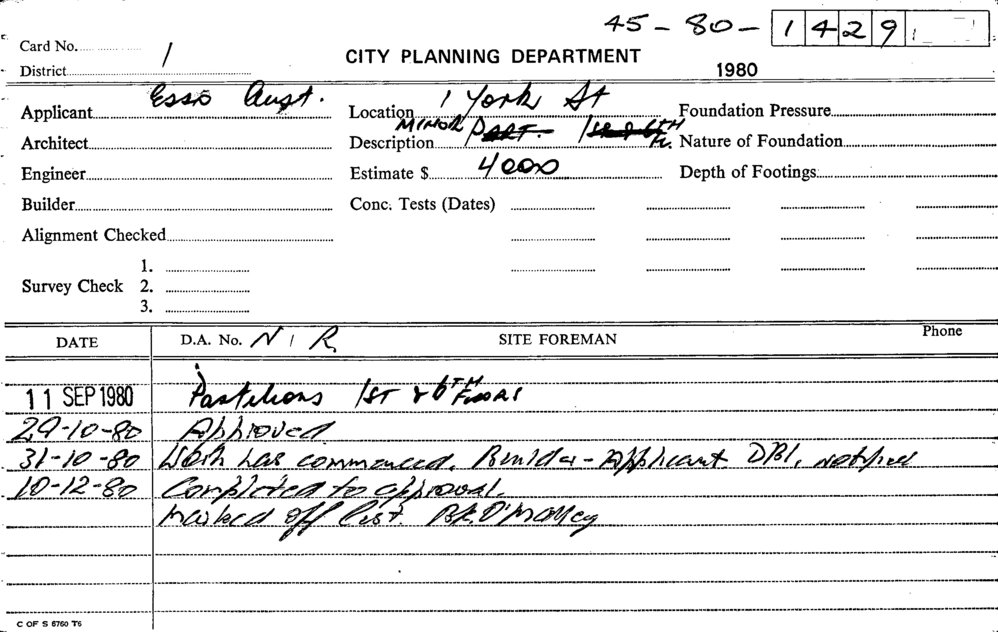 45-80-1429
Card No. 1
CITY PLANNING DEPARTMENT
District
1980
Applicant Esso Aust. Location 1 York St Foundation Pressure
Architect Description MINOR PART. 1ST & 6TH FL. Nature of Foundation
Engineer Estimate $ 4000 Depth of Footings
Builder Conc. Tests (Dates)
Alignment Checked
1.
Survey Check 2.
3.
DATE D.A. No. N/R. SITE FOREMAN Phone
11 SEP 1980 Partitions 1ST & 6TH Floors
29-10-80 Approved
31-10-80 Work has commenced. Builder - Applicant DBI, notified
10-12-80 Completed to approval.
Marked off list. B.K. O'Malley
C OF S 6760 T6